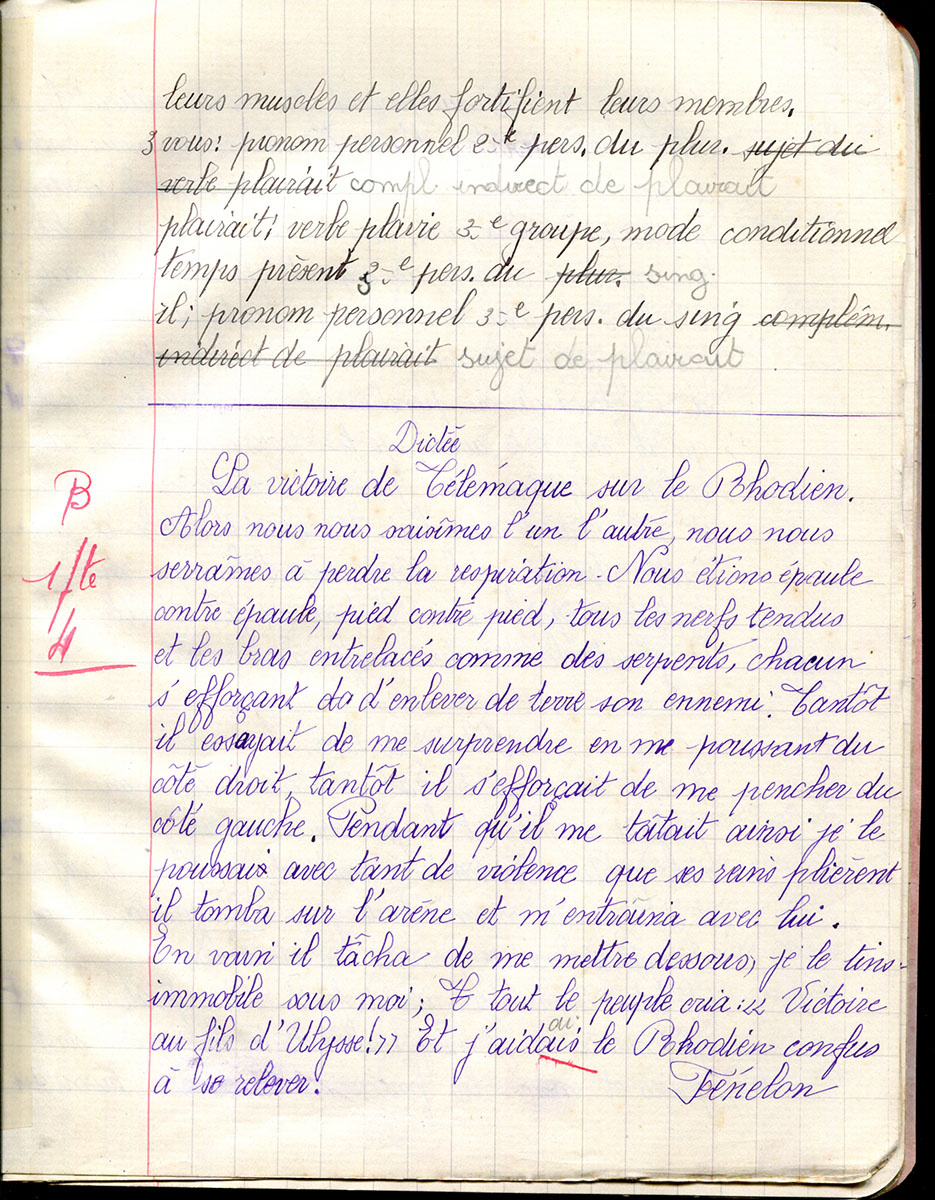 leurs muscles et elles fortifient leurs membres.
3 vous: pronom personnel 2e pers. du plur. sujet du
verbe plairait compl. indirect de plairait
plairait; verbe plaire 3e groupe, mode conditionnel
temps présent 3e pers. du plur. sing.
il; pronom personnel 3e pers. du sing complém.
indirect de plairait sujet de plairait
Dictée
La victoire de Télémaque sur le Rhodien.
Alors nous nous saisîmes l'un l'autre, nous nous
serrâmes à perdre la respiration. Nous étions épaule
contre épaule, pied contre pied, tous les nerfs tendus
et les bras entrelacés comme des serpents, chacun
s'efforçant da d'enlever de terre son ennemi. Tantôt
il essayait de me surprendre en me poussant du
côté droit, tantôt il s'efforçait de me pencher du
côté gauche. Pendant qu'il me tâtait ainsi je le
poussais avec tant de violence que ses reins plièrent
il tomba sur l'arène et m'entraîna avec lui.
En vain il tâcha de me mettre dessous, je le tins
immobile sous moi; Et tout le peuple cria: << Victoire
au fils d'Ulysse! >> Et j'aidais ai le Rhodien confus
à se relever.
Fénelon
B
1 fte
4